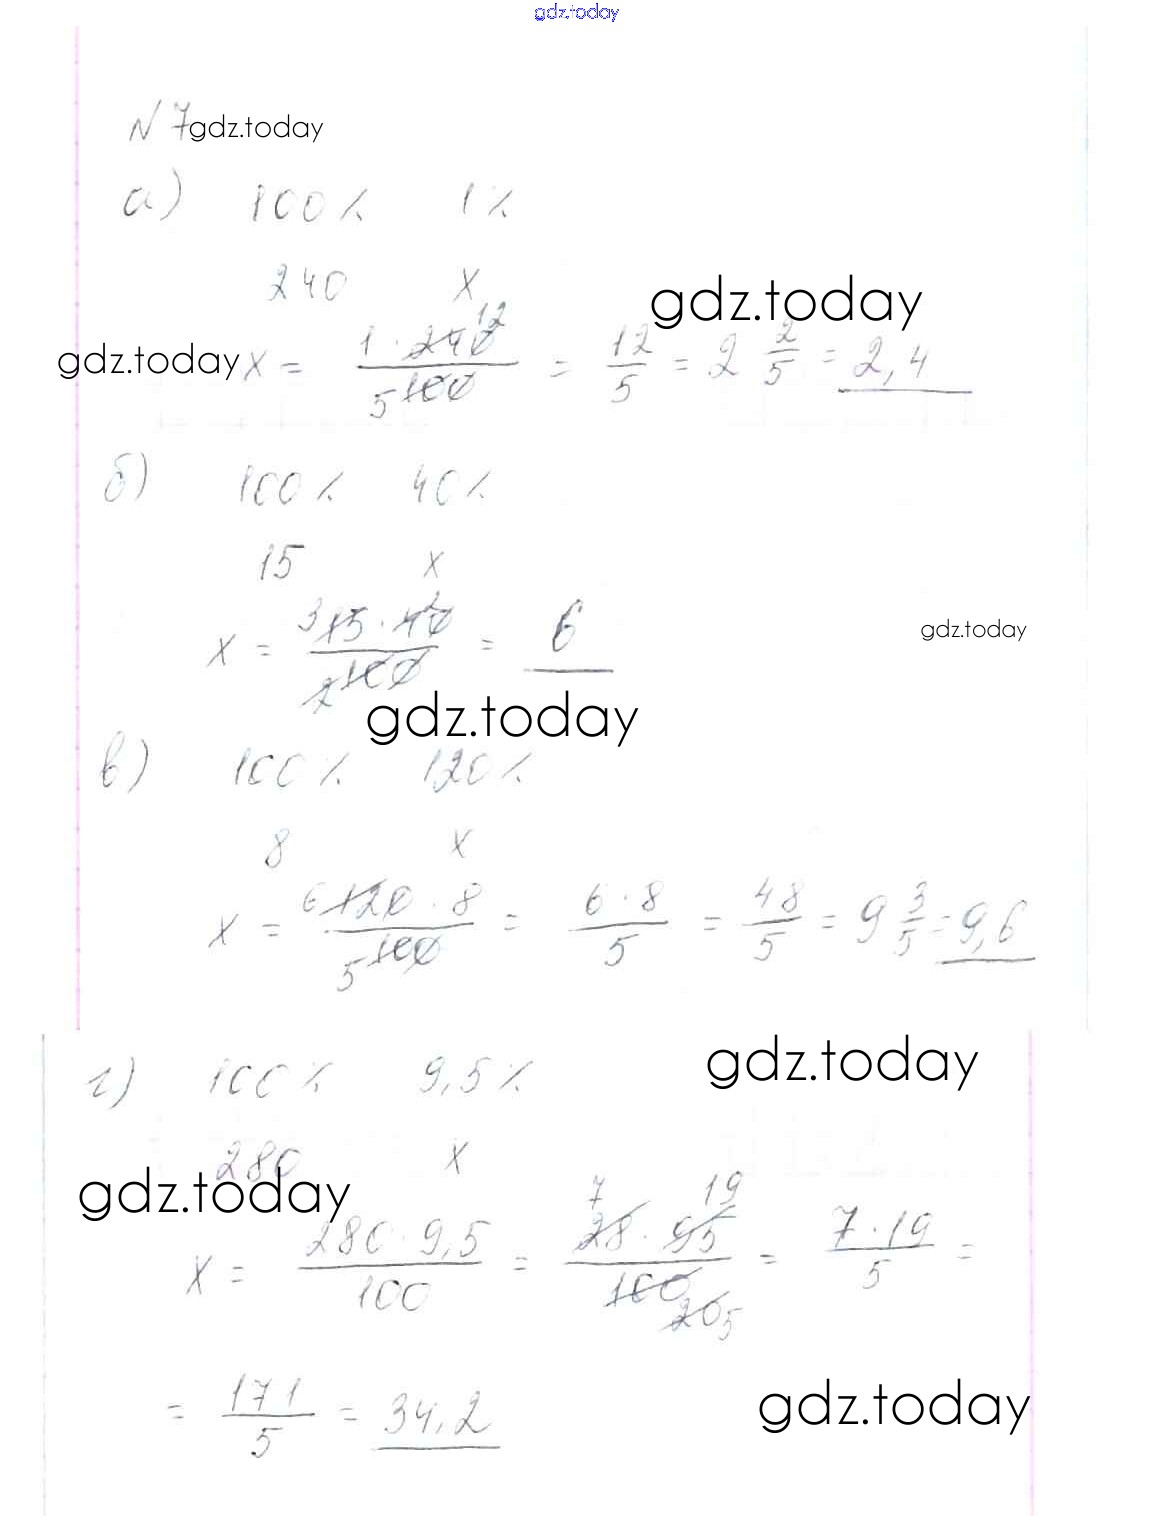 gdz.today
N 7 gdz.today
а) 100% 1%
240 x
gdz.today
gdz.today x = 1 · 240 12 / 5 100 = 12/5 = 2 2/5 = 2,4
б) 100% 40%
15 x
x = 3 15 · 40 2 / 2 100 = 6
gdz.today
gdz.today
в) 100% 120%
8 x
x = 6 120 · 8 / 5 100 = 6 · 8 / 5 = 48/5 = 9 3/5 = 9,6
gdz.today
г) 100% 9,5%
280 x
gdz.today
x = 280 · 9,5 / 100 = 7 28 · 95 19 / 100 20 5 = 7 · 19 / 5 =
= 171/5 = 34,2
gdz.today